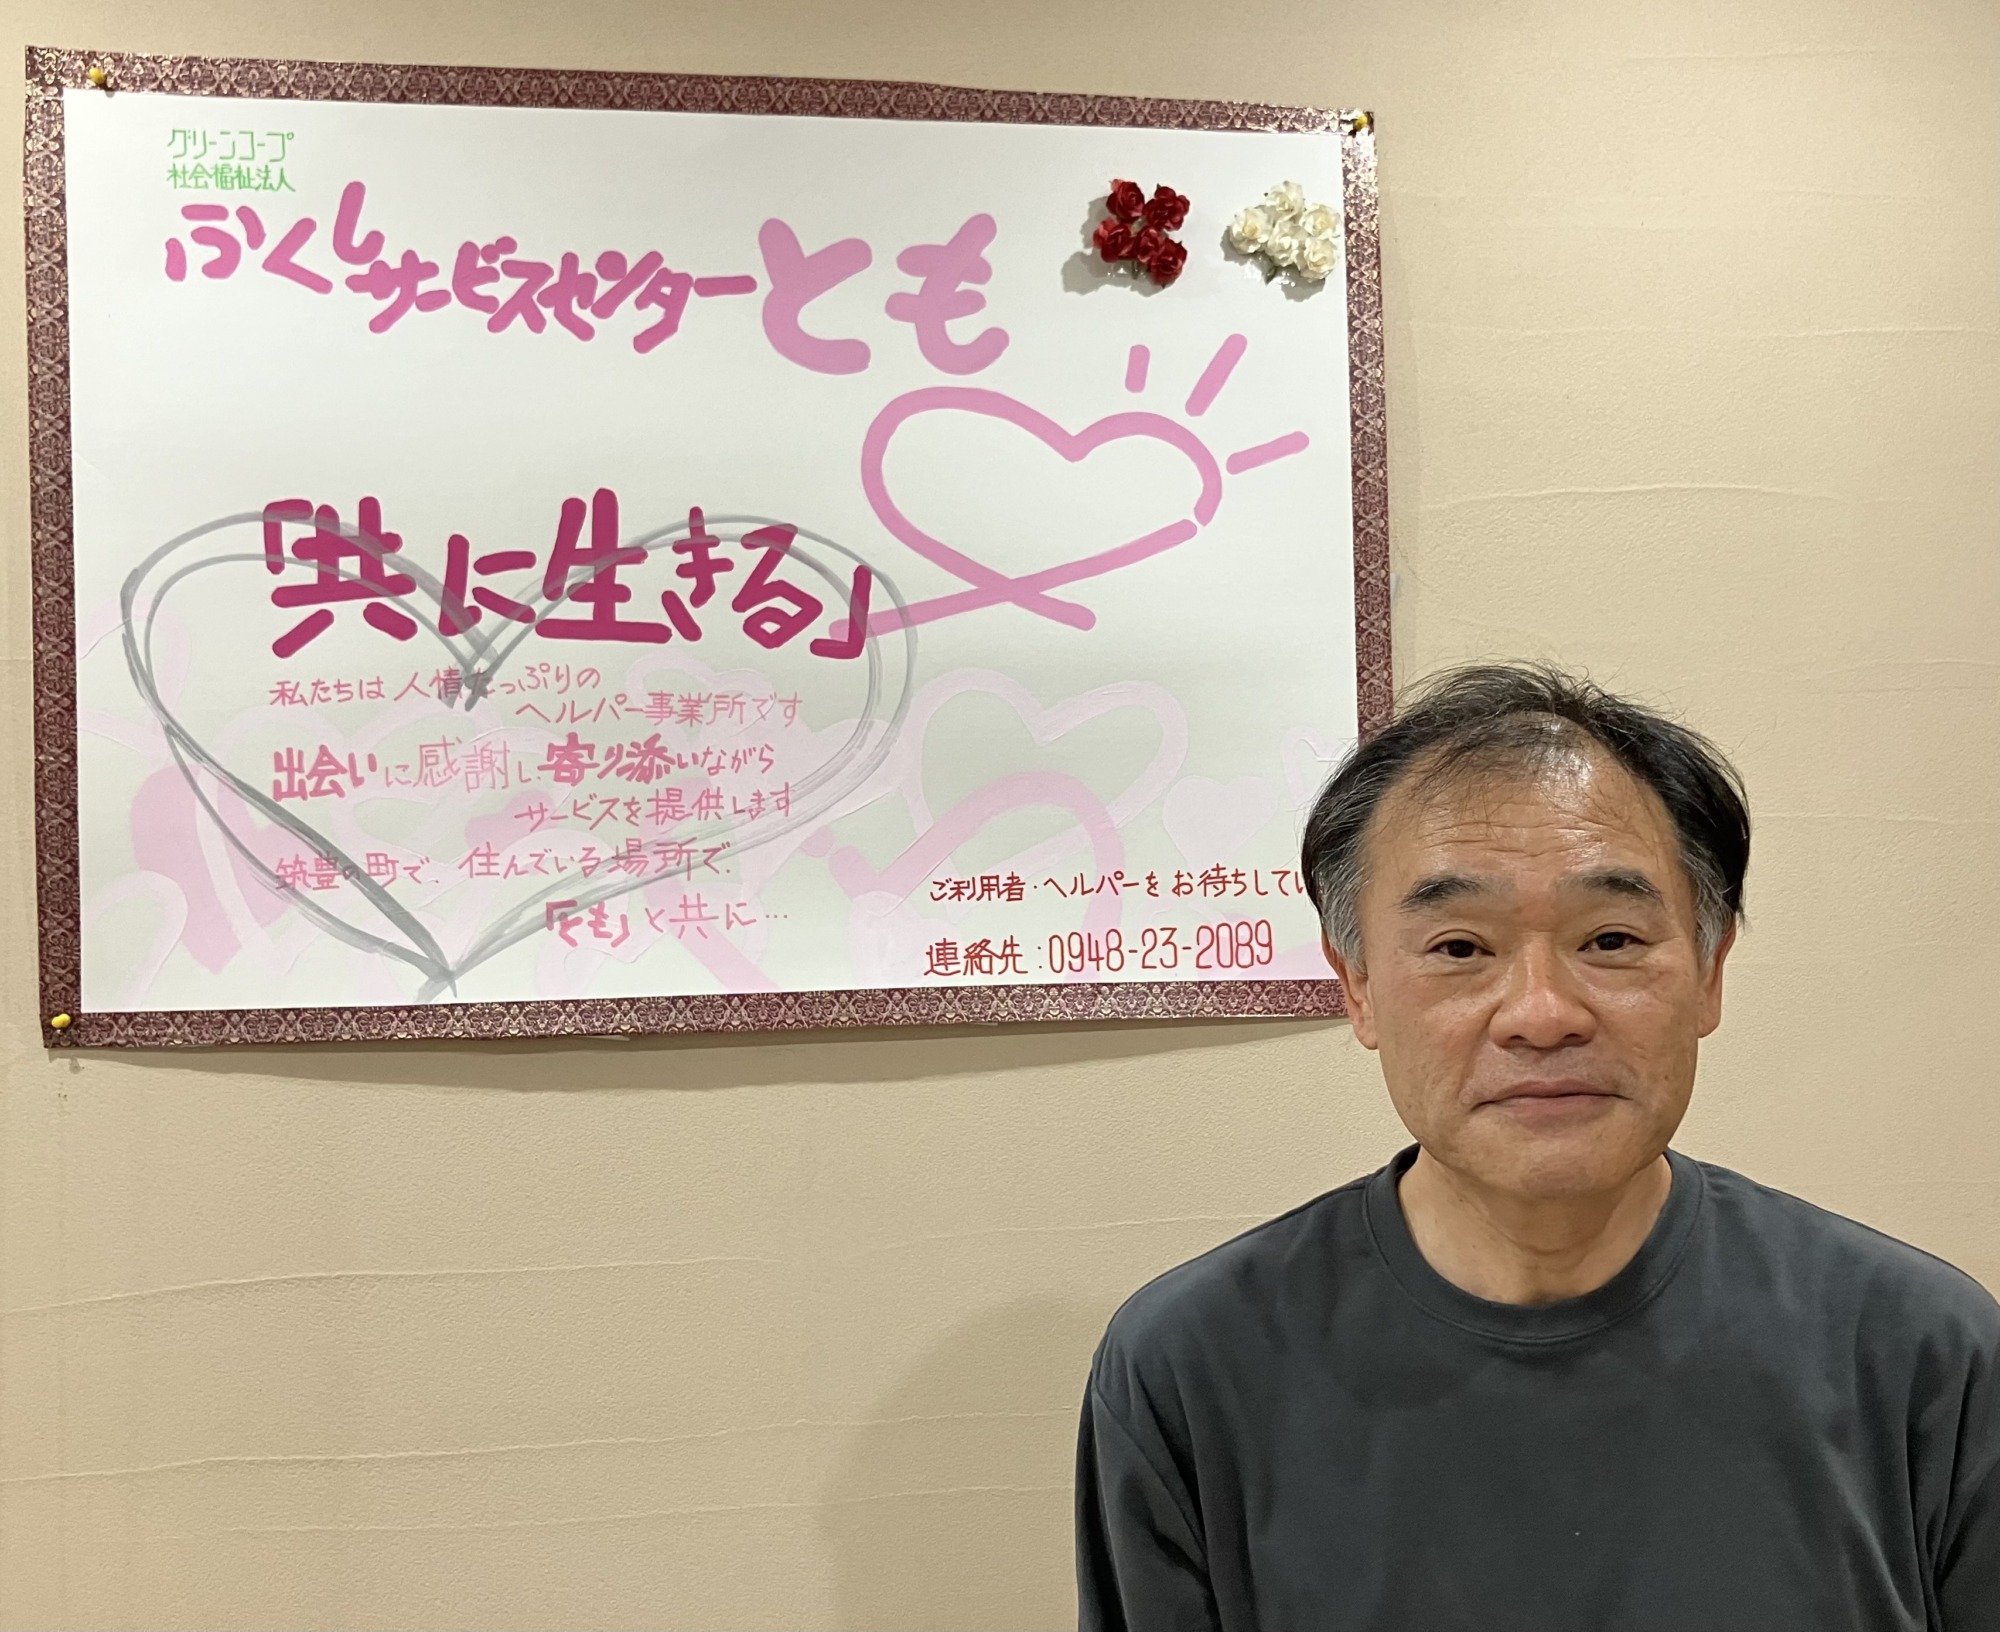 グリーンコープ
社会福祉法人
ふくしサービスセンターとも
「共に生きる」
私たちは人情たっぷりの
ヘルパー事業所です
出会いに感謝し、寄り添いながら
サービスを提供します
筑豊の町で、住んでいる場所で、
「とも」と共に…
ご利用者・ヘルパーをお待ちしてい
連絡先:0948-23-2089